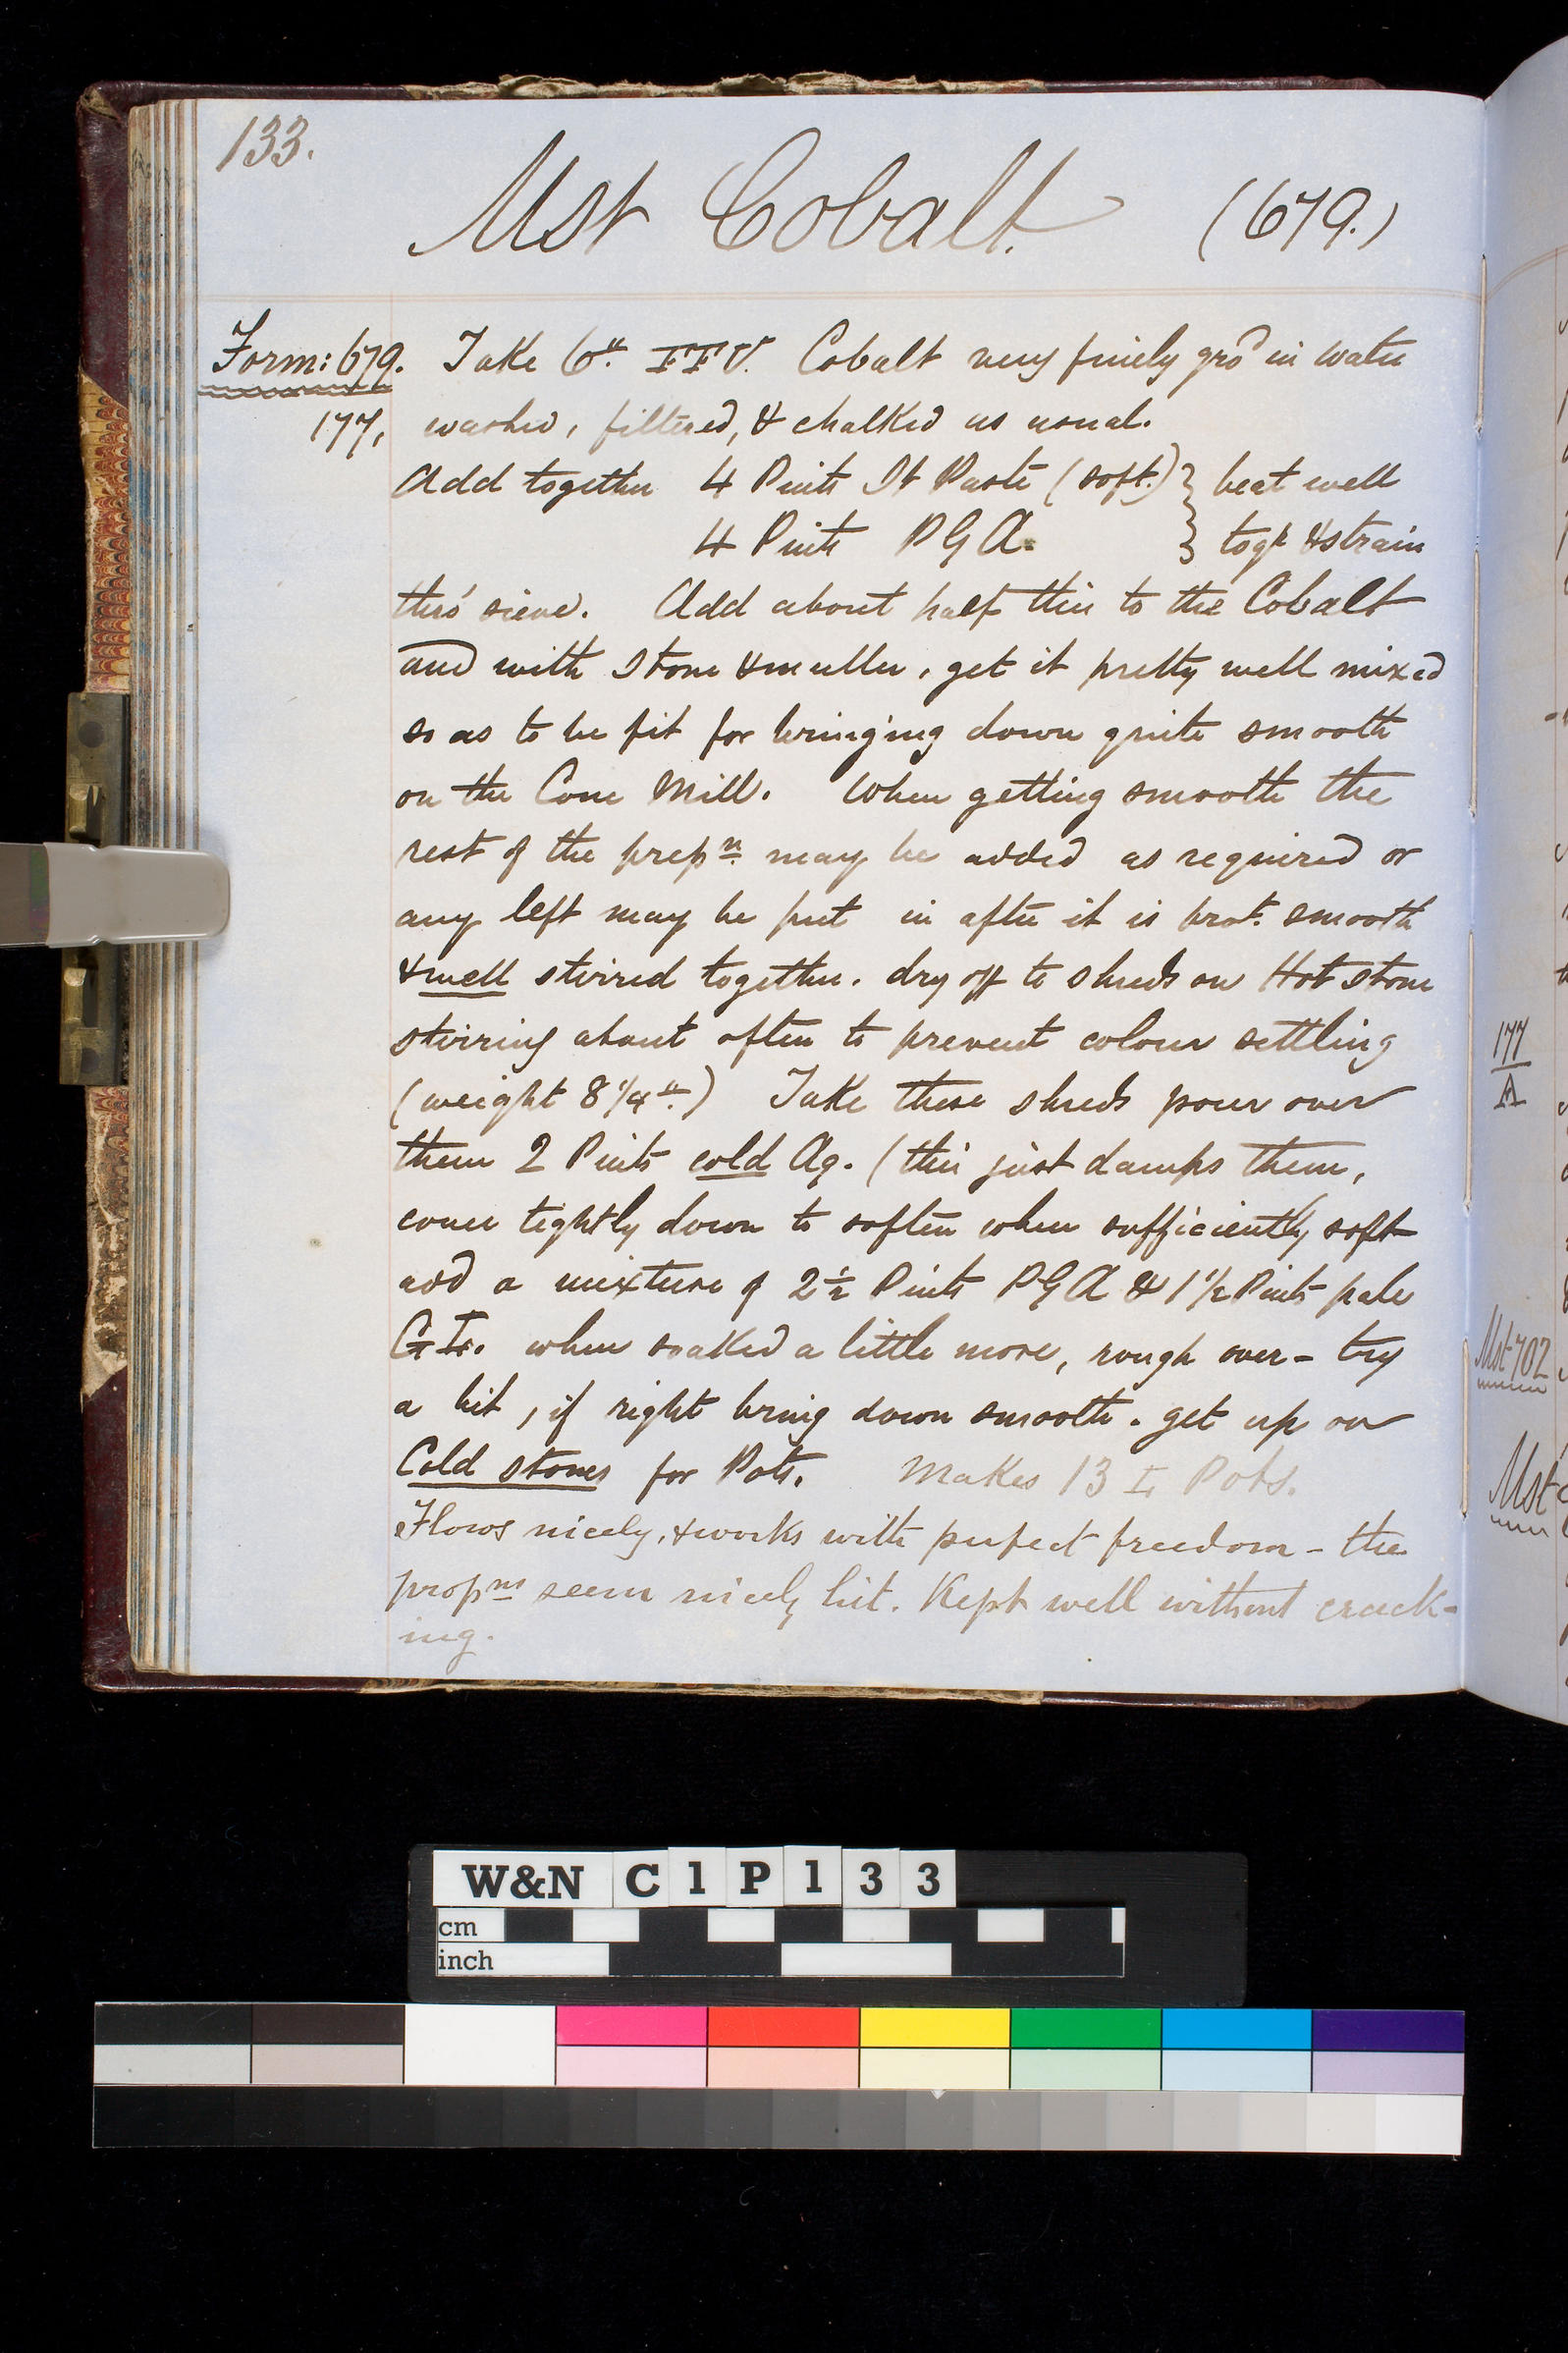 133.
Mst Cobalt. (679.)
Form: 679. Take 6lb. FFV. Cobalt very finely grd in water
177, washed, filtered, & chalked as usual.
Add together 4 Pints St Paste (soft.) } beat well
4 Pints PGA. } togr & strain
thro' sieve. Add about half this to the Cobalt
and with Stone & muller, get it pretty well mixed
so as to be fit for bringing down quite smooth
on the Cone Mill. When getting smooth the
rest of the prepn. may be added as required or
any left may be put in after it is brot. smooth
& well stirred together. dry off to shreds on Hot stone
stirring about often to prevent colour settling
(weight 8 1/4 lb.) Take these shreds pour over
them 2 Pints cold Aq. (this just damps them,
cover tightly down to soften when sufficiently soft
add a mixture of 2 1/2 Pints PGA & 1 1/2 Pints pale
when soaked a little more, rough over - try
a bit, if right bring down smooth. get up on
Cold stones for Pots. Makes 13 Pots.
Flows nicely, & works with perfect freedom - the
propns seem nicely hit. Kept well without crack-
ing.
177
A
Mst 702
Mst
W&N C1P133
cm
inch